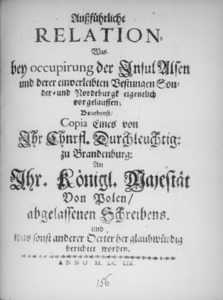 Außführliche
RELATION,
Was
bey occupirung der Insul Alsen
und derer einverleibten Vestungen Son-
der- und Nordtburgk eigentlich
vorgelauffen;
Benebenst
Copia Eines von
Ihr Churfl. Durchleuchtig:
zu Brandenburg:
An
Ihr. Königl. Majestät
Von Polen/
abgelassenen Schreibens.
und
was sonst anderer Oerter her glaubwürdig
berichtet worden.
ANNO M. LIX.
156